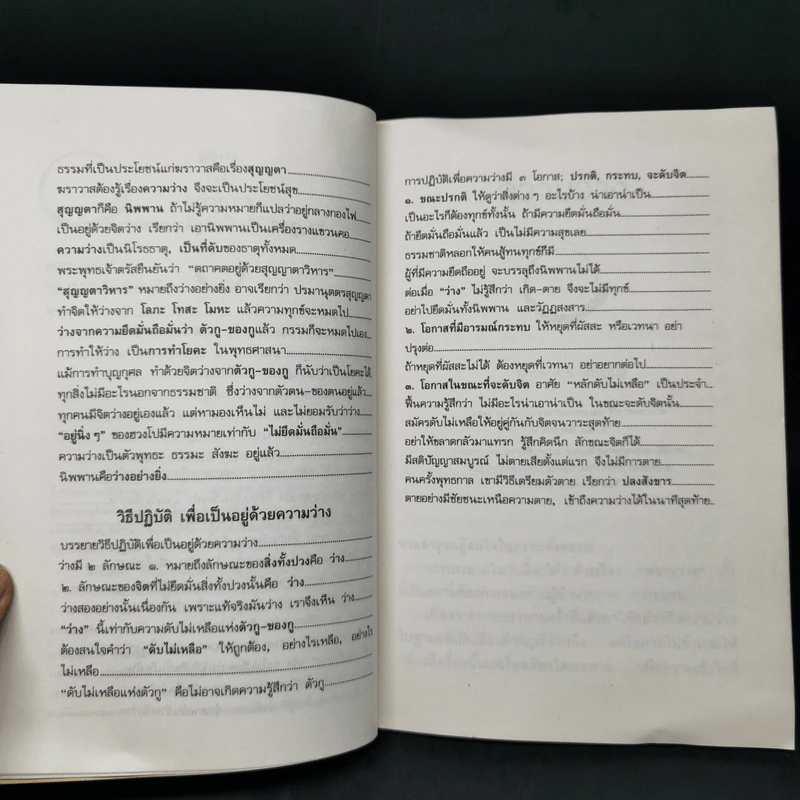 ธรรมที่เป็นประโยชน์แก่ฆราวาสคือเรื่องสุญญตา
ฆราวาสต้องรู้เรื่องความว่าง จึงจะเป็นประโยชน์สุข
สุญญตาก็คือ นิพพาน ถ้าไม่รู้ความหมายก็แปลว่าอยู่กลางกองไฟ
เป็นอยู่ด้วยจิตว่าง เรียกว่า เอานิพพานเป็นเครื่องรางแขวนคอ
ความว่างเป็นนิโรธธาตุ, เป็นที่ดับของธาตุทั้งหมด
พระพุทธเจ้าตรัสยืนยันว่า "ตถาคตอยู่ด้วยสุญญตาวิหาร"
"สุญญตาวิหาร" หมายถึงว่างอย่างยิ่ง อาจเรียกว่า ปรมานุตตรสุญญตา
ทำจิตให้ว่างจาก โลภะ โทสะ โมหะ แล้วความทุกข์จะหมดไป
ว่างจากความยึดมั่นถือมั่นว่า ตัวกู-ของกูแล้ว กรรมก็จะหมดไปเอง
การทำให้ว่าง เป็นการทำโยคะ ในพุทธศาสนา
แม้การทำบุญกุศล ทำด้วยจิตว่างจากตัวกู-ของกู ก็นับว่าเป็นโยคะได้
ทุกสิ่งไม่มีอะไรนอกจากธรรมชาติ ซึ่งว่างจากตัวตน-ของตนอยู่แล้ว
ทุกคนมีจิตว่างอยู่เองแล้ว แต่หามองเห็นไม่ และไม่ยอมรับว่าว่าง
"อยู่นิ่ง ๆ" ของฮวงโปมีความหมายเท่ากับ "ไม่ยึดมั่นถือมั่น"
ความว่างเป็นตัวพุทธะ ธรรมะ สังฆะ อยู่แล้ว
นิพพานคือว่างอย่างยิ่ง
วิธีปฏิบัติ เพื่อเป็นอยู่ด้วยความว่าง
บรรยายวิธีปฏิบัติเพื่อเป็นอยู่ด้วยความว่าง
ว่างมี ๒ ลักษณะ ๑. หมายถึงลักษณะของสิ่งทั้งปวงคือ ว่าง
๒. ลักษณะของจิตที่ไม่ยึดมั่นสิ่งทั้งปวงนั้นคือ ว่าง
ว่างสองอย่างนั้นเนื่องกัน เพราะแท้จริงมันว่าง เราจึงเห็น ว่าง
"ว่าง" นี้เท่ากับความดับไม่เหลือแห่งตัวกู-ของกู
ต้องสนใจคำว่า "ดับไม่เหลือ" ให้ถูกต้อง, อย่างไรเหลือ, อย่างไร
ไม่เหลือ
"ดับไม่เหลือแห่งตัวกู" คือไม่อาจเกิดความรู้สึกว่า ตัวกู
การปฏิบัติเพื่อความว่างมี ๓ โอกาส; ปรกติ, กระทบ, จะดับจิต
๑. ขณะปรกติ ให้ดูว่าสิ่งต่าง ๆ อะไรบ้าง น่าเอาน่าเป็น
เป็นอะไรก็ต้องทุกข์ทั้งนั้น ถ้ามีความยึดมั่นถือมั่น
ถ้ายึดมั่นถือมั่นแล้ว เป็นไม่มีความสุขเลย
ธรรมชาติหลอกให้คนสู้ทนทุกข์ก็มี
ผู้ที่มีความยึดถืออยู่ จะบรรลุถึงนิพพานไม่ได้
ต่อเมื่อ "ว่าง" ไม่รู้สึกว่า เกิด-ตาย จึงจะไม่มีทุกข์
อย่าไปยึดมั่นทั้งนิพพาน และวัฏฏสงสาร
๒. โอกาสที่มีอารมณ์กระทบ ให้หยุดที่ผัสสะ หรือเวทนา อย่า
ปรุงต่อ
ถ้าหยุดที่ผัสสะไม่ได้ ต้องหยุดที่เวทนา อย่าอยากต่อไป
๓. โอกาสในขณะที่จะดับจิต อาศัย "หลักดับไม่เหลือ" เป็นประจำ
ฟื้นความรู้สึกว่า ไม่มีอะไรน่าเอาน่าเป็น ในขณะจะดับจิตนั้น
สมัครดับไม่เหลือให้อยู่คู่กันกับจิตจนวาระสุดท้าย
อย่าให้ขลาดกลัวมาแทรก รู้สึกคิดนึก สักขณะจิตก็ได้
มีสติปัญญาสมบูรณ์ ไม่ตายเสียตั้งแต่แรก จึงไม่มีการตาย
คนครั้งพุทธกาล เขามีวิธีเตรียมตัวตาย เรียกว่า ปลงสังขาร
ตายอย่างมีชัยชนะเหนือความตาย, เข้าถึงความว่างได้ในนาทีสุดท้าย